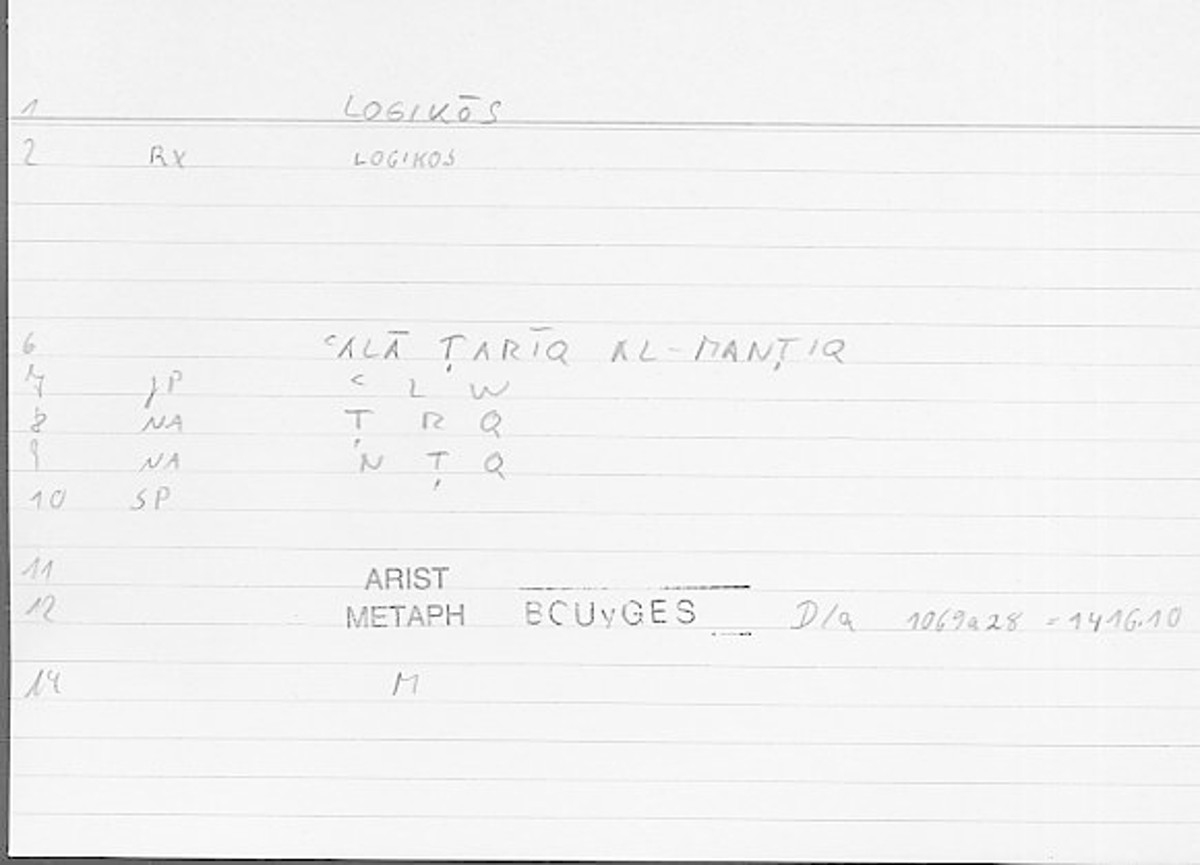 1 LOGIKŌS
2 RX LOGIKOS
6 ʿALĀ ṬARĪQ AL-MANṬIQ
7 JP ʿ L W
8 NA Ṭ R Q
9 NA N Ṭ Q
10 SP
11 ARIST
12 METAPH BOUyGES D/a 1069a28 = 1416.10
14 M